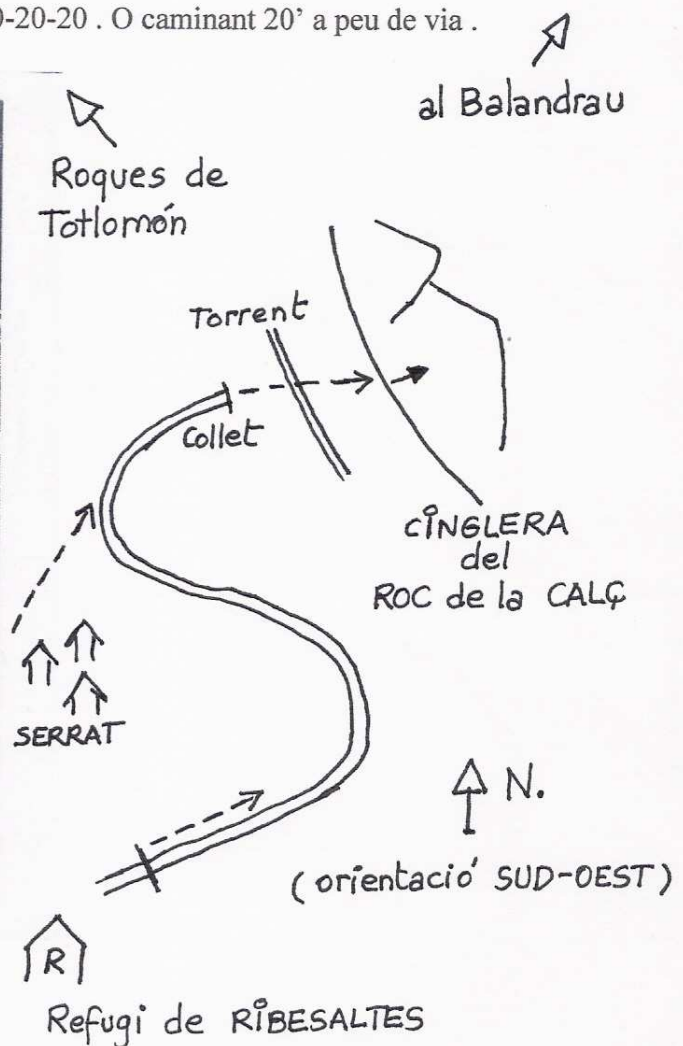 -20-20 . O caminant 20’ a peu de via .
al Balandrau
Roques de
Totlomón
Torrent
Collet
CINGLERA
del
ROC de la CALÇ
SERRAT
N.
(orientació SUD-OEST)
R
Refugi de RIBESALTES